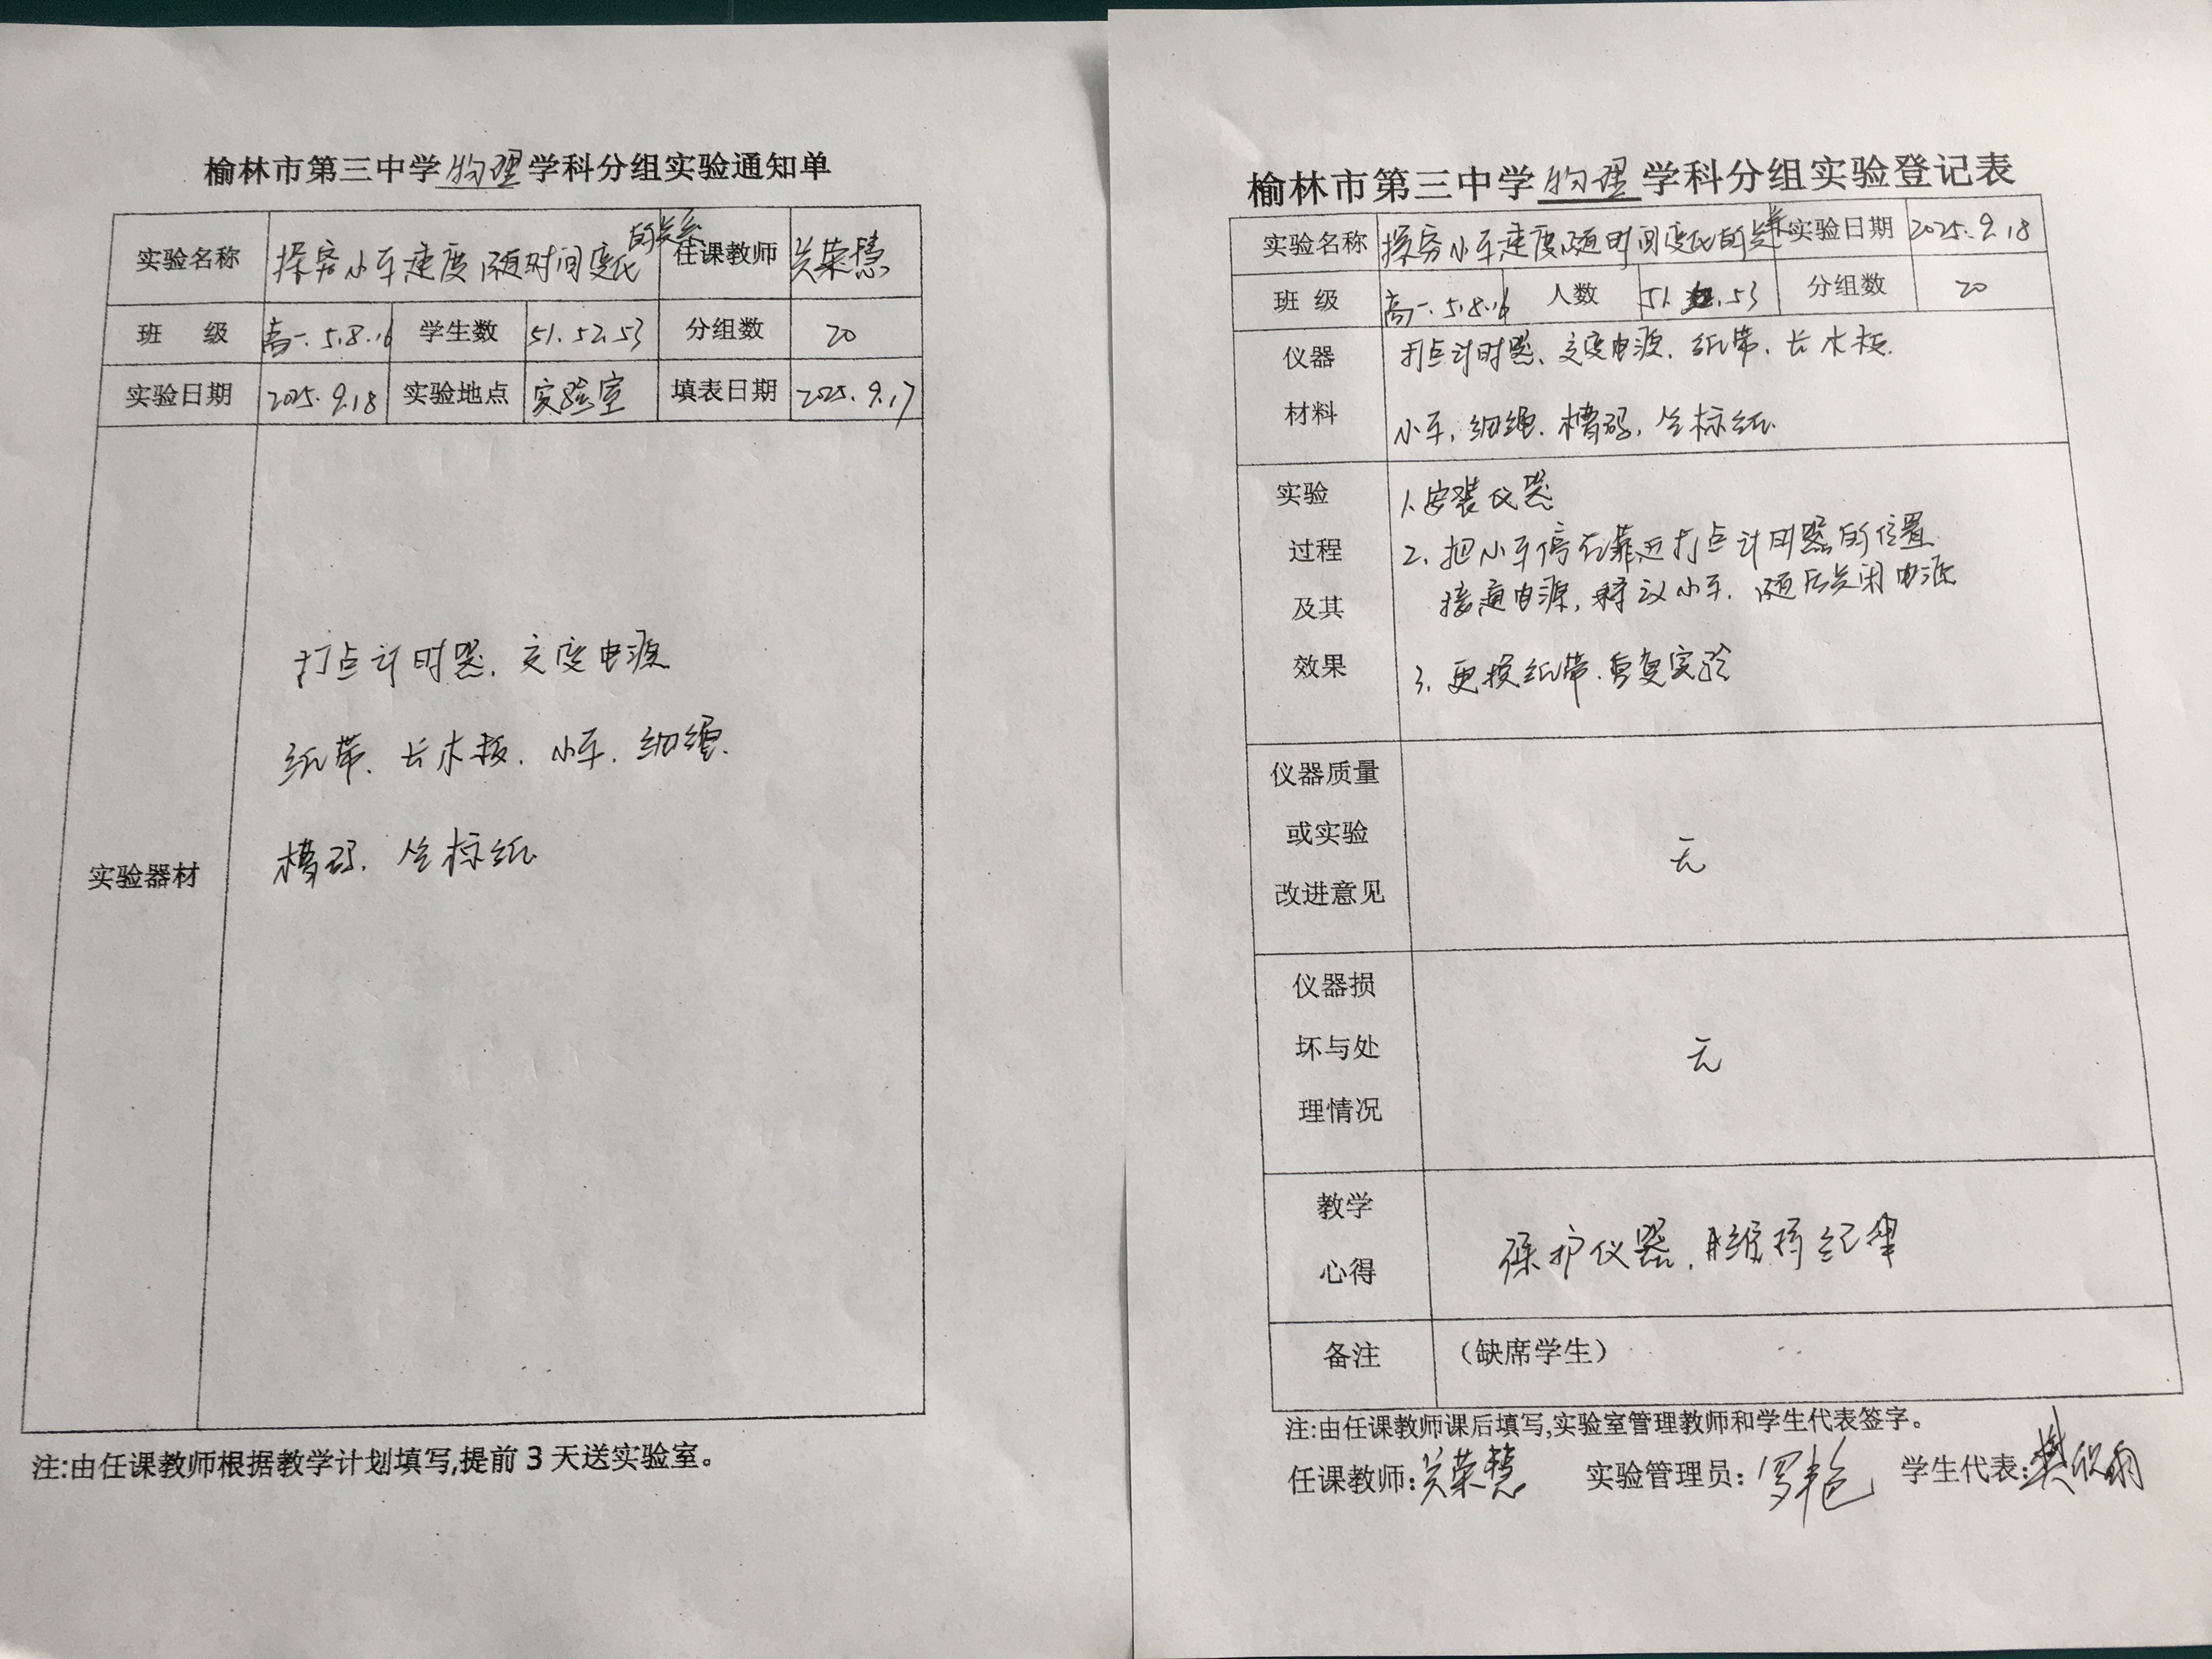 榆林市第三中学物理学科分组实验通知单
实验名称 探究小车速度随时间变化的关系 任课教师 关荣慧
班 级 高一.5.8.16 学生数 51.52.53 分组数 20
实验日期 2025.9.18 实验地点 实验室 填表日期 2025.9.17
实验器材
打点计时器、交变电源
纸带、长木板、小车、细绳、
槽码、坐标纸
注:由任课教师根据教学计划填写,提前3天送实验室。
榆林市第三中学物理学科分组实验登记表
实验名称 探究小车速度随时间变化的关系 实验日期 2025.9.18
班 级 高一.5.8.16 人数 51. .53 分组数 20
仪器 打点计时器、交变电源、纸带、长木板、
材料 小车、细绳、槽码、坐标纸
实验 1.安装仪器
过程 2.把小车停在靠近打点计时器的位置
及其 接通电源,释放小车.随后关闭电源
效果 3.更换纸带.重复实验
仪器质量
或实验 无
改进意见
仪器损
坏与处 无
理情况
教学
心得 保护仪器,维持纪律
备注 (缺席学生)
注:由任课教师课后填写,实验室管理教师和学生代表签字。
任课教师:关荣慧 实验管理员:罗艳 学生代表:樊